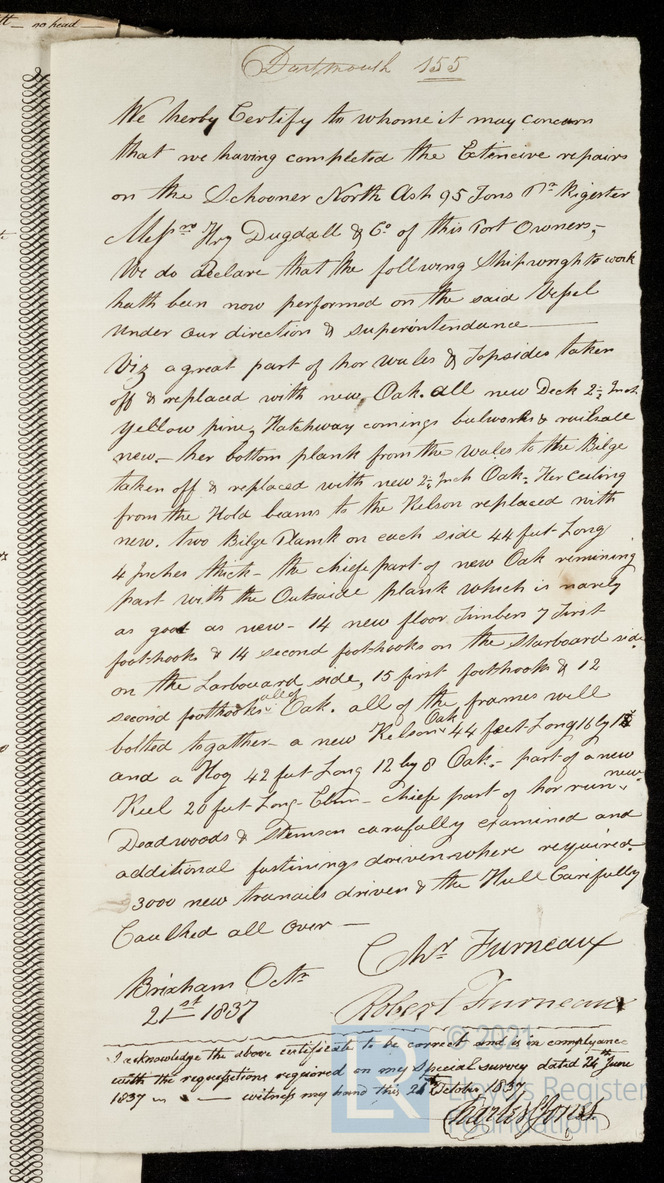 no head
Dartmouth 155
We herby Certify to whome it may concern
that we having completed the Extencive repairs
on the Schooner North Ash 95 Tons Pr Rigester
Messrs Hry Dugdall & Co of this Port Owners,
We do declare that the following Shipwrights work
hath been now performed on the said Vessel
under our direction & superintendance
Viz a great part of hor wales & Topsides taken
off & replaced with new Oak. all new Deck 2½ Inch
yellow pine, Hatchway comings bulworks & railsall
new. her bottom plank from the wales to the Bilge
taken off & replaced with new 2½ Inch Oak. Her Ceiling
from the Hold beams to the Kelson replaced with
new. two Bilge Plank on each side 44 feet Long
4 Inches thick - the chiefe part of new Oak remining
part with the Outsaide plank which is narely
as good as new - 14 new floor Timbers 7 First
foothooks & 14 second foothooks on the starboard side
on the Larbouard side, 15 first foothooks & 12
second foothooks all of Oak. all of the frames well
bolted togather - a new Kelson Oak 44 feet Long 16 by 12
and a Hog 42 feet Long 12 by 8 Oak. - part of a new
Keel 20 feet Long - Elm - chiefe part of hor run new
Deadwoods & Stemson carefully examined and
additional fastinings driven where required
3000 new tranails driven & the Hull Carifully
Caulked all over
Chr Furneaux
Brixham Octr
21st 1837
Robert Furneaux
I acknowledge the above certificate to be correct and is in complyance
with the requisitions required on my Special survey datid 24th June
1837 witness my hand this 24th October 1837
Charles Jones
LR
© 2021
Lloyds Register
Foundation